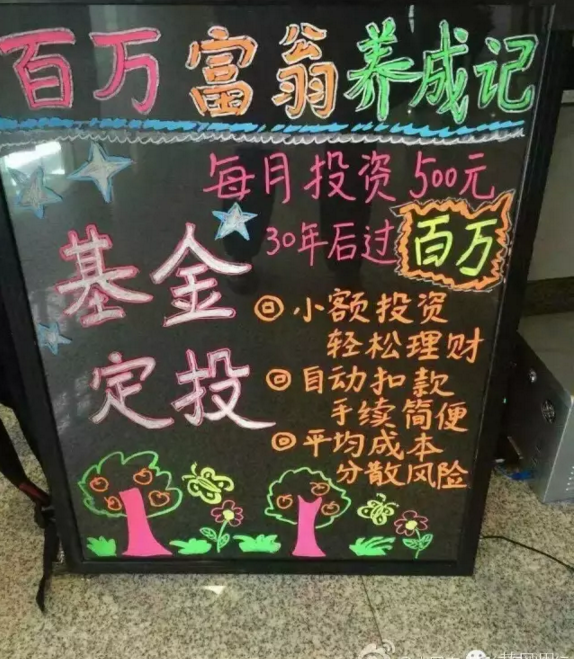 百万富翁养成记
每月投资500元
30年后过百万
基金
定投
小额投资
轻松理财
自动扣款
手续简便
平均成本
分散风险